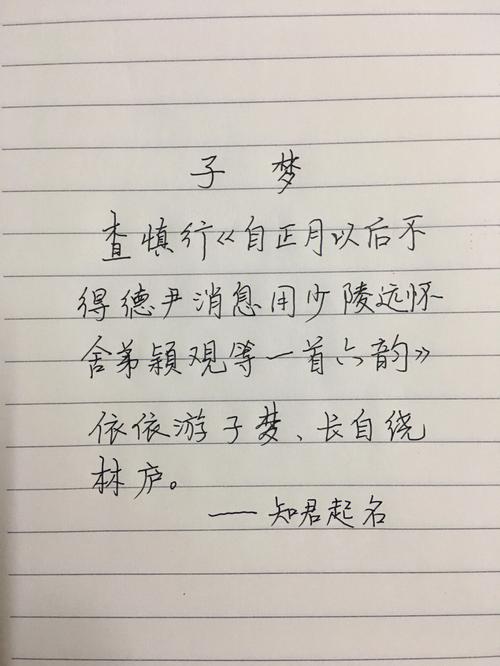 子 梦
查慎行《自正月以后不
得德尹消息用少陵远怀
舍弟颖观等一首六韵》
依依游子梦、长自绕
林庐。
——知君起名